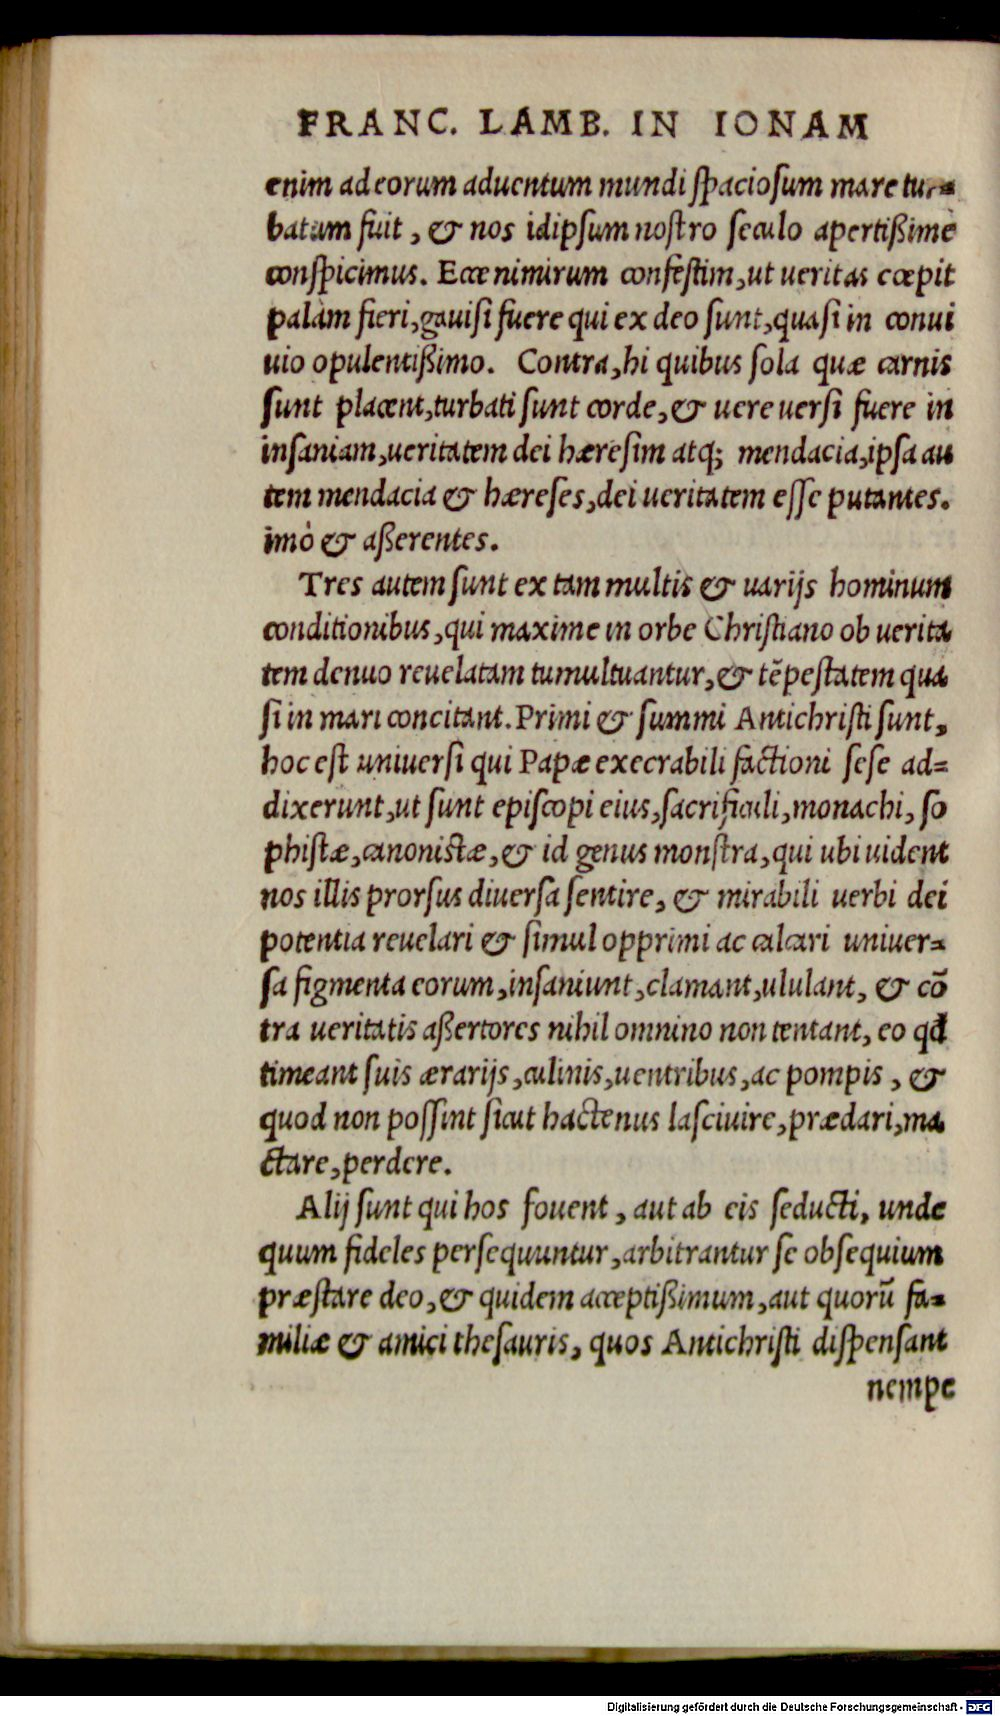 FRANC. LAMB. IN IONAM
enim ad eorum aduentum mundi ſpacioſum mare tur=
batum fuit, & nos idipſum noſtro ſeculo apertißime
conſpicimus. Ecce nimirum confeſtim, ut ueritas cœpit
palàm fieri, gauiſi fuere qui ex deo ſunt, quaſi in conui
uio opulentißimo. Contra, hi quibus ſola quæ carnis
ſunt placent, turbati ſunt corde, & uere uerſi fuere in
inſaniam, ueritatem dei hæreſim atq; mendacia, ipſa au
tem mendacia & hæreſes, dei ueritatem eſſe putantes.
imò & aßerentes.
Tres autem ſunt ex tam multis & uarijs hominum
conditionibus, qui maxime in orbe Chriſtiano ob uerita
tem denuo reuelatam tumultuantur, & tēpeſtatem qua
ſi in mari concitant. Primi & ſummi Antichriſti ſunt,
hoc eſt uniuerſi qui Papæ execrabili factioni ſeſe ad=
dixerunt, ut ſunt epiſcopi eius, ſacrificuli, monachi, ſo
phiſtæ, canoniſtæ, & id genus monſtra, qui ubi uident
nos illis prorſus diuerſa ſentire, & mirabili uerbi dei
potentia reuelari & ſimul opprimi ac calcari uniuer=
ſa figmenta eorum, inſaniunt, clamant, ululant, & cō
tra ueritatis aßertores nihil omnino non tentant, eo qd
timeant ſuis ærarijs, culinis, uentribus, ac pompis, &
quod non poſſint ſicut hactenus laſciuire, prædari, ma
ctare, perdere.
Alij ſunt qui hos fouent, aut ab eis ſeducti, unde
quum fideles perſequuntur, arbitrantur ſe obſequium
præſtare deo, & quidem acceptißimum, aut quorū fa=
miliæ & amici theſauris, quos Antichriſti diſpenſant
nempe
Digitalisierung gefördert durch die Deutsche Forschungsgemeinschaft - DFG